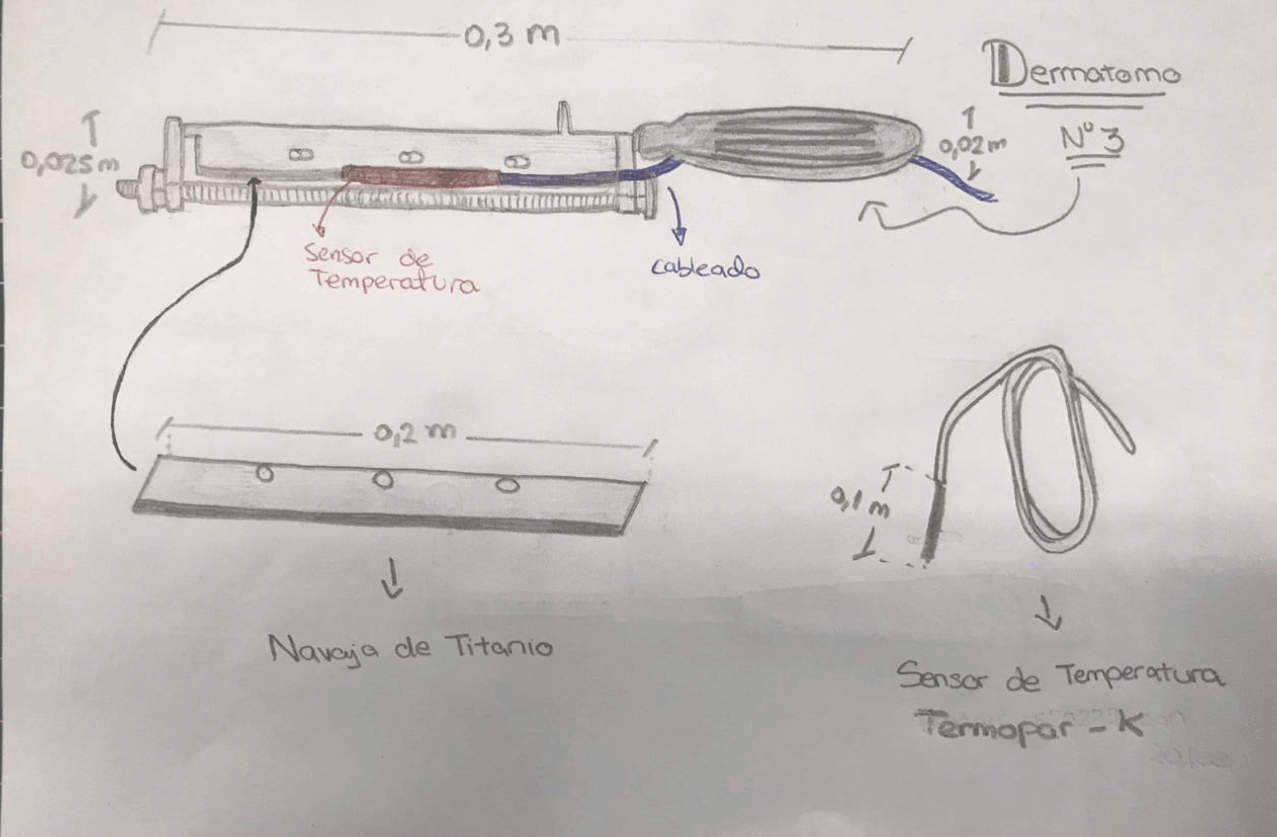 0,3 m
Dermatomo
Nº 3
0,025m
0,02m
Sensor de
Temperatura
cableado
0,2 m
0,1 m
Navaja de Titanio
Sensor de Temperatura
Termopar - K